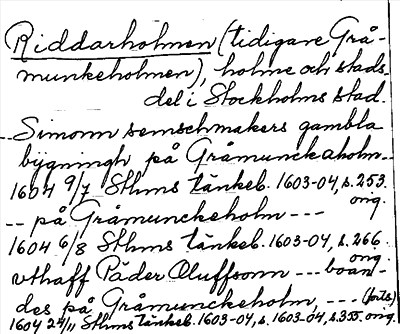 Riddarholmen (tidigare Grå-
munkeholmen), holme och stads-
del i Stockholms stad.
--Simonn semschmakers gambla
bÿgningh på Gråmunckaholm--
1604 9/7 Sthms tänkeb. 1603-04, s. 253.
orig.
-- på Gråmunckeholm ---
1604 6/8 Sthms tänkeb. 1603-04, s. 266.
orig.
vthaff Päder Oluffsonn --- boan-
des på Gråmunckeholm, --- (forts.)
1604 24/11 Sthms tänkeb. 1603-04, s. 1603-04, s. 355. orig.